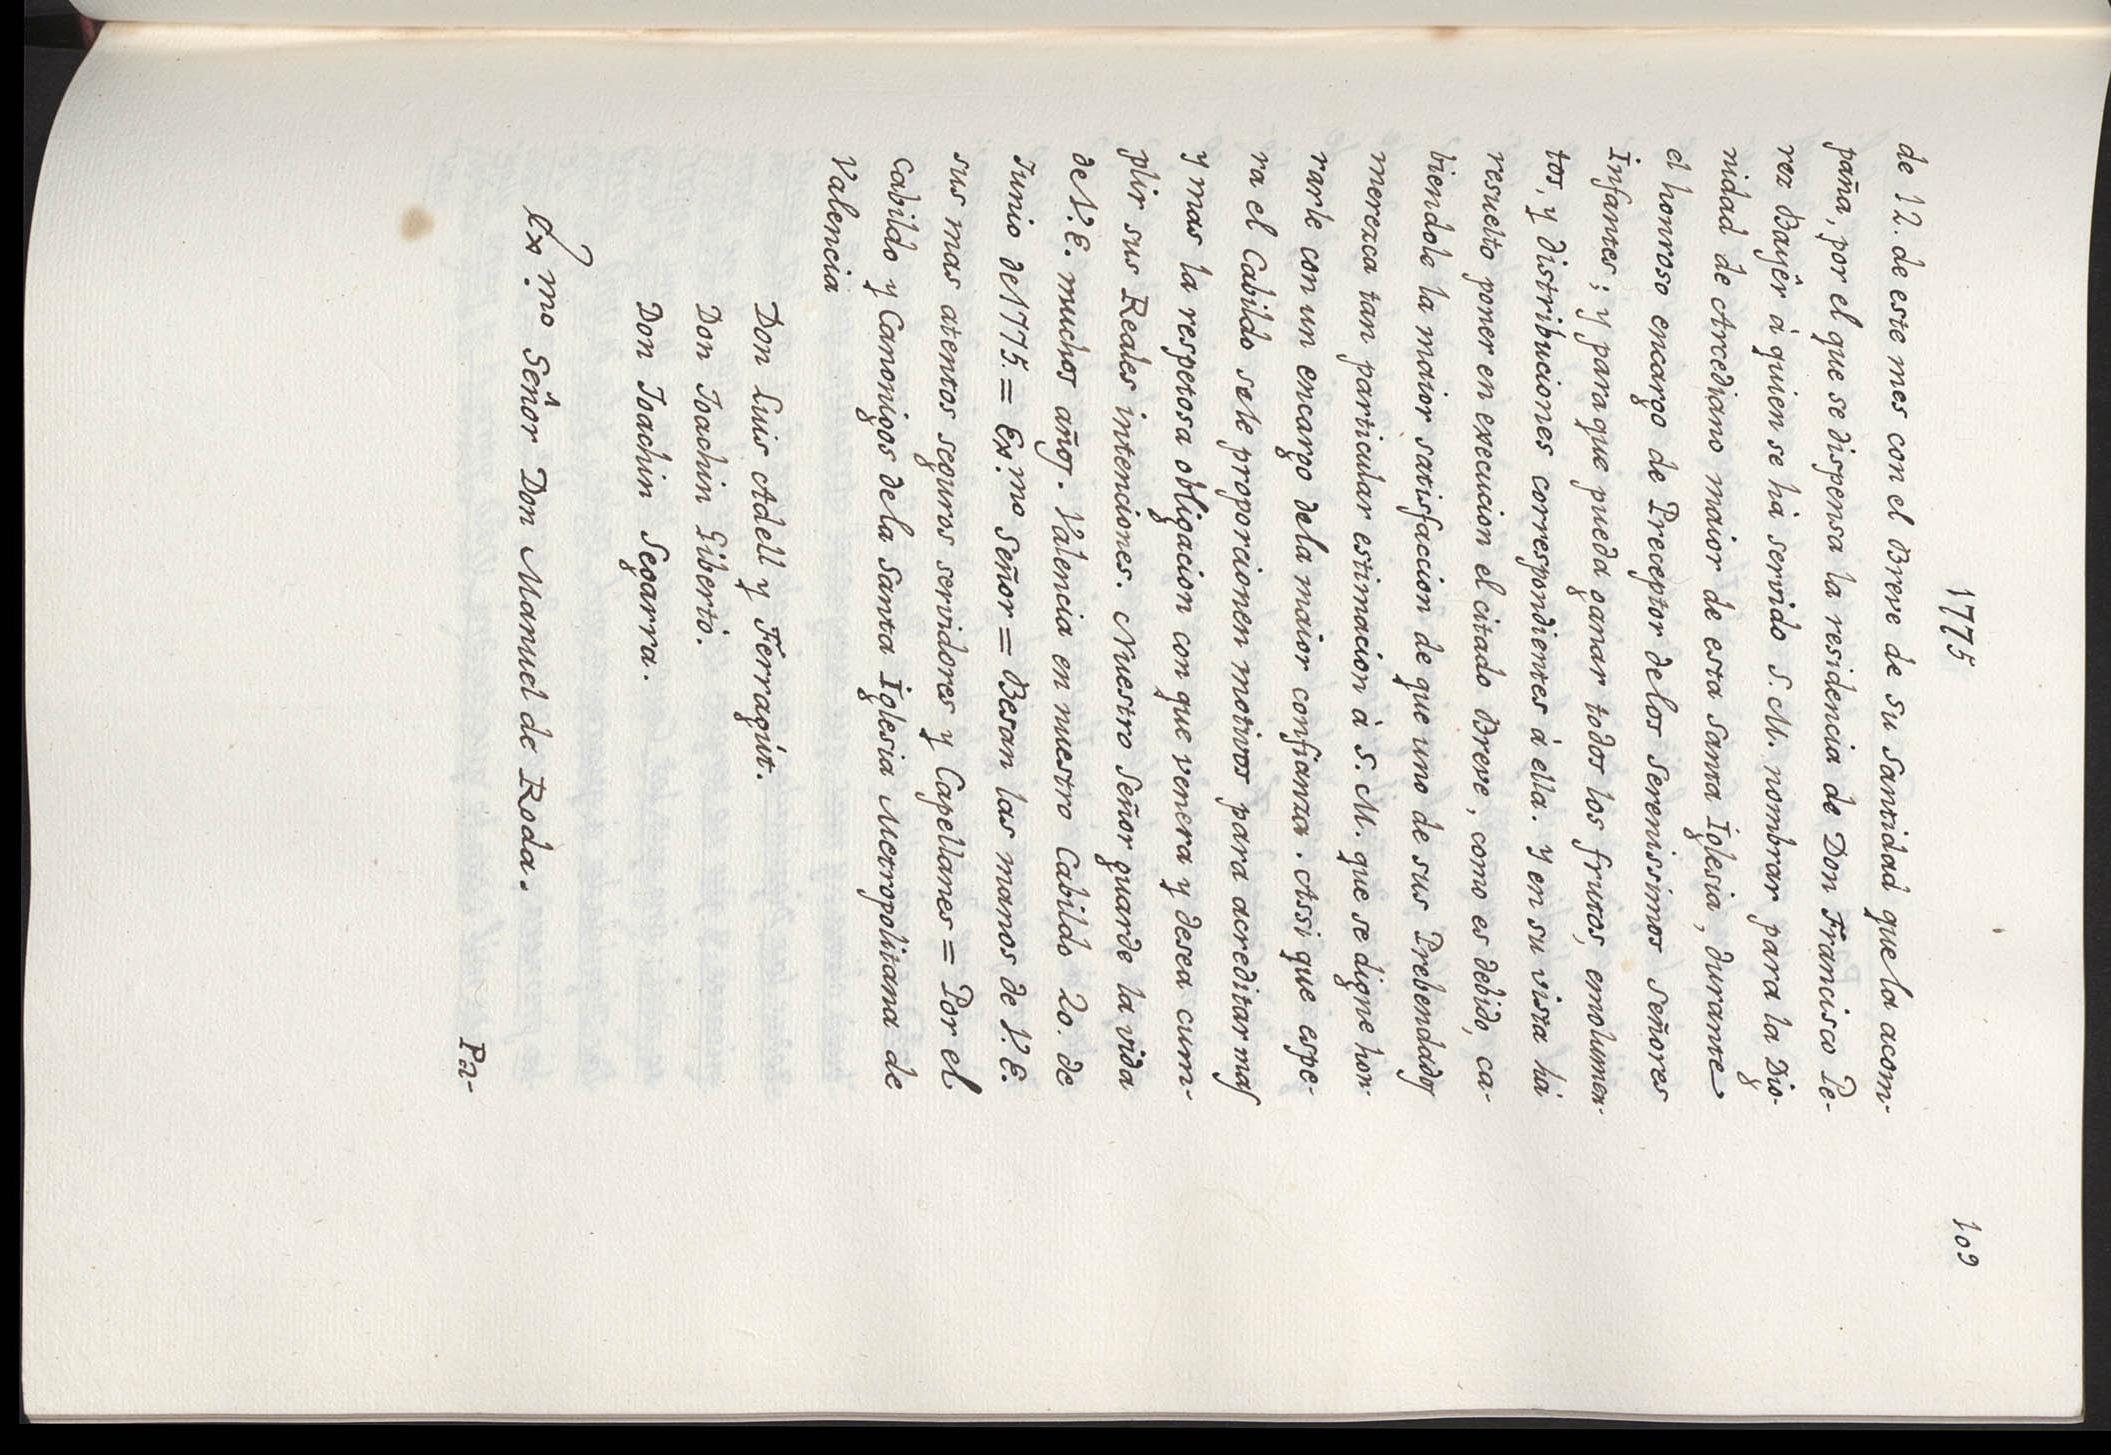 1775
109
de 12. de este mes con el Breve de Su Santidad que la acom-
paña, por el que se dispensa la residencia de Don Francisco Pe-
rez Bayêr à quien se hà servido S. M. nombrar para la Dig-
nidad de Arcediano maior de esta Santa Iglesia, durante
el honroso encargo de Preceptor delos Serenissimos Señores
Infantes; y para que pueda ganar todos los frutos, emolumen-
tos, y distribuciones correspondientes à ella. Y en su vista hà
resuelto poner en execucion el citado Breve, como es debido, ca-
biendole la maior satisfaccion de que uno de sus Prebendados
merezca tan particular estimacion à S. M. que se digne hon-
rarle con un encargo dela maior confianza. Assi que espe-
ra el Cabildo sele proporcionen motivos para acreditar mas
y mas la respetosa obligacion con que venera y desea cum-
plir sus Reales intenciones. Nuestro Señor guarde la vida
de V. E. muchos años. Valencia en nuestro Cabildo 20. de
Junio de 1775. = Ex.mo Señor = Besan las manos de V. E.
sus mas atentos seguros servidores y Capellanes = Por el
Cabildo y Canonigos dela Santa Iglesia Metropolitana de
Valencia
Don Luis Adell y Ferragút.
Don Joachin Gibertò.
Don Joachin Segarra.
Ex.mo Señor Don Manuel de Roda.
Pa-